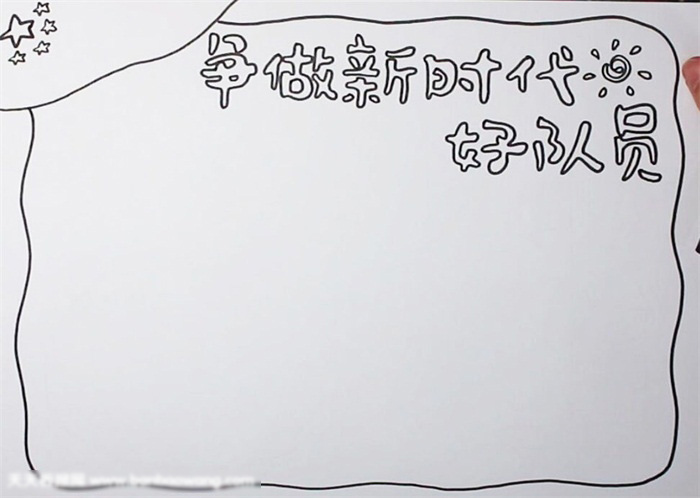 争做新时代
好队员